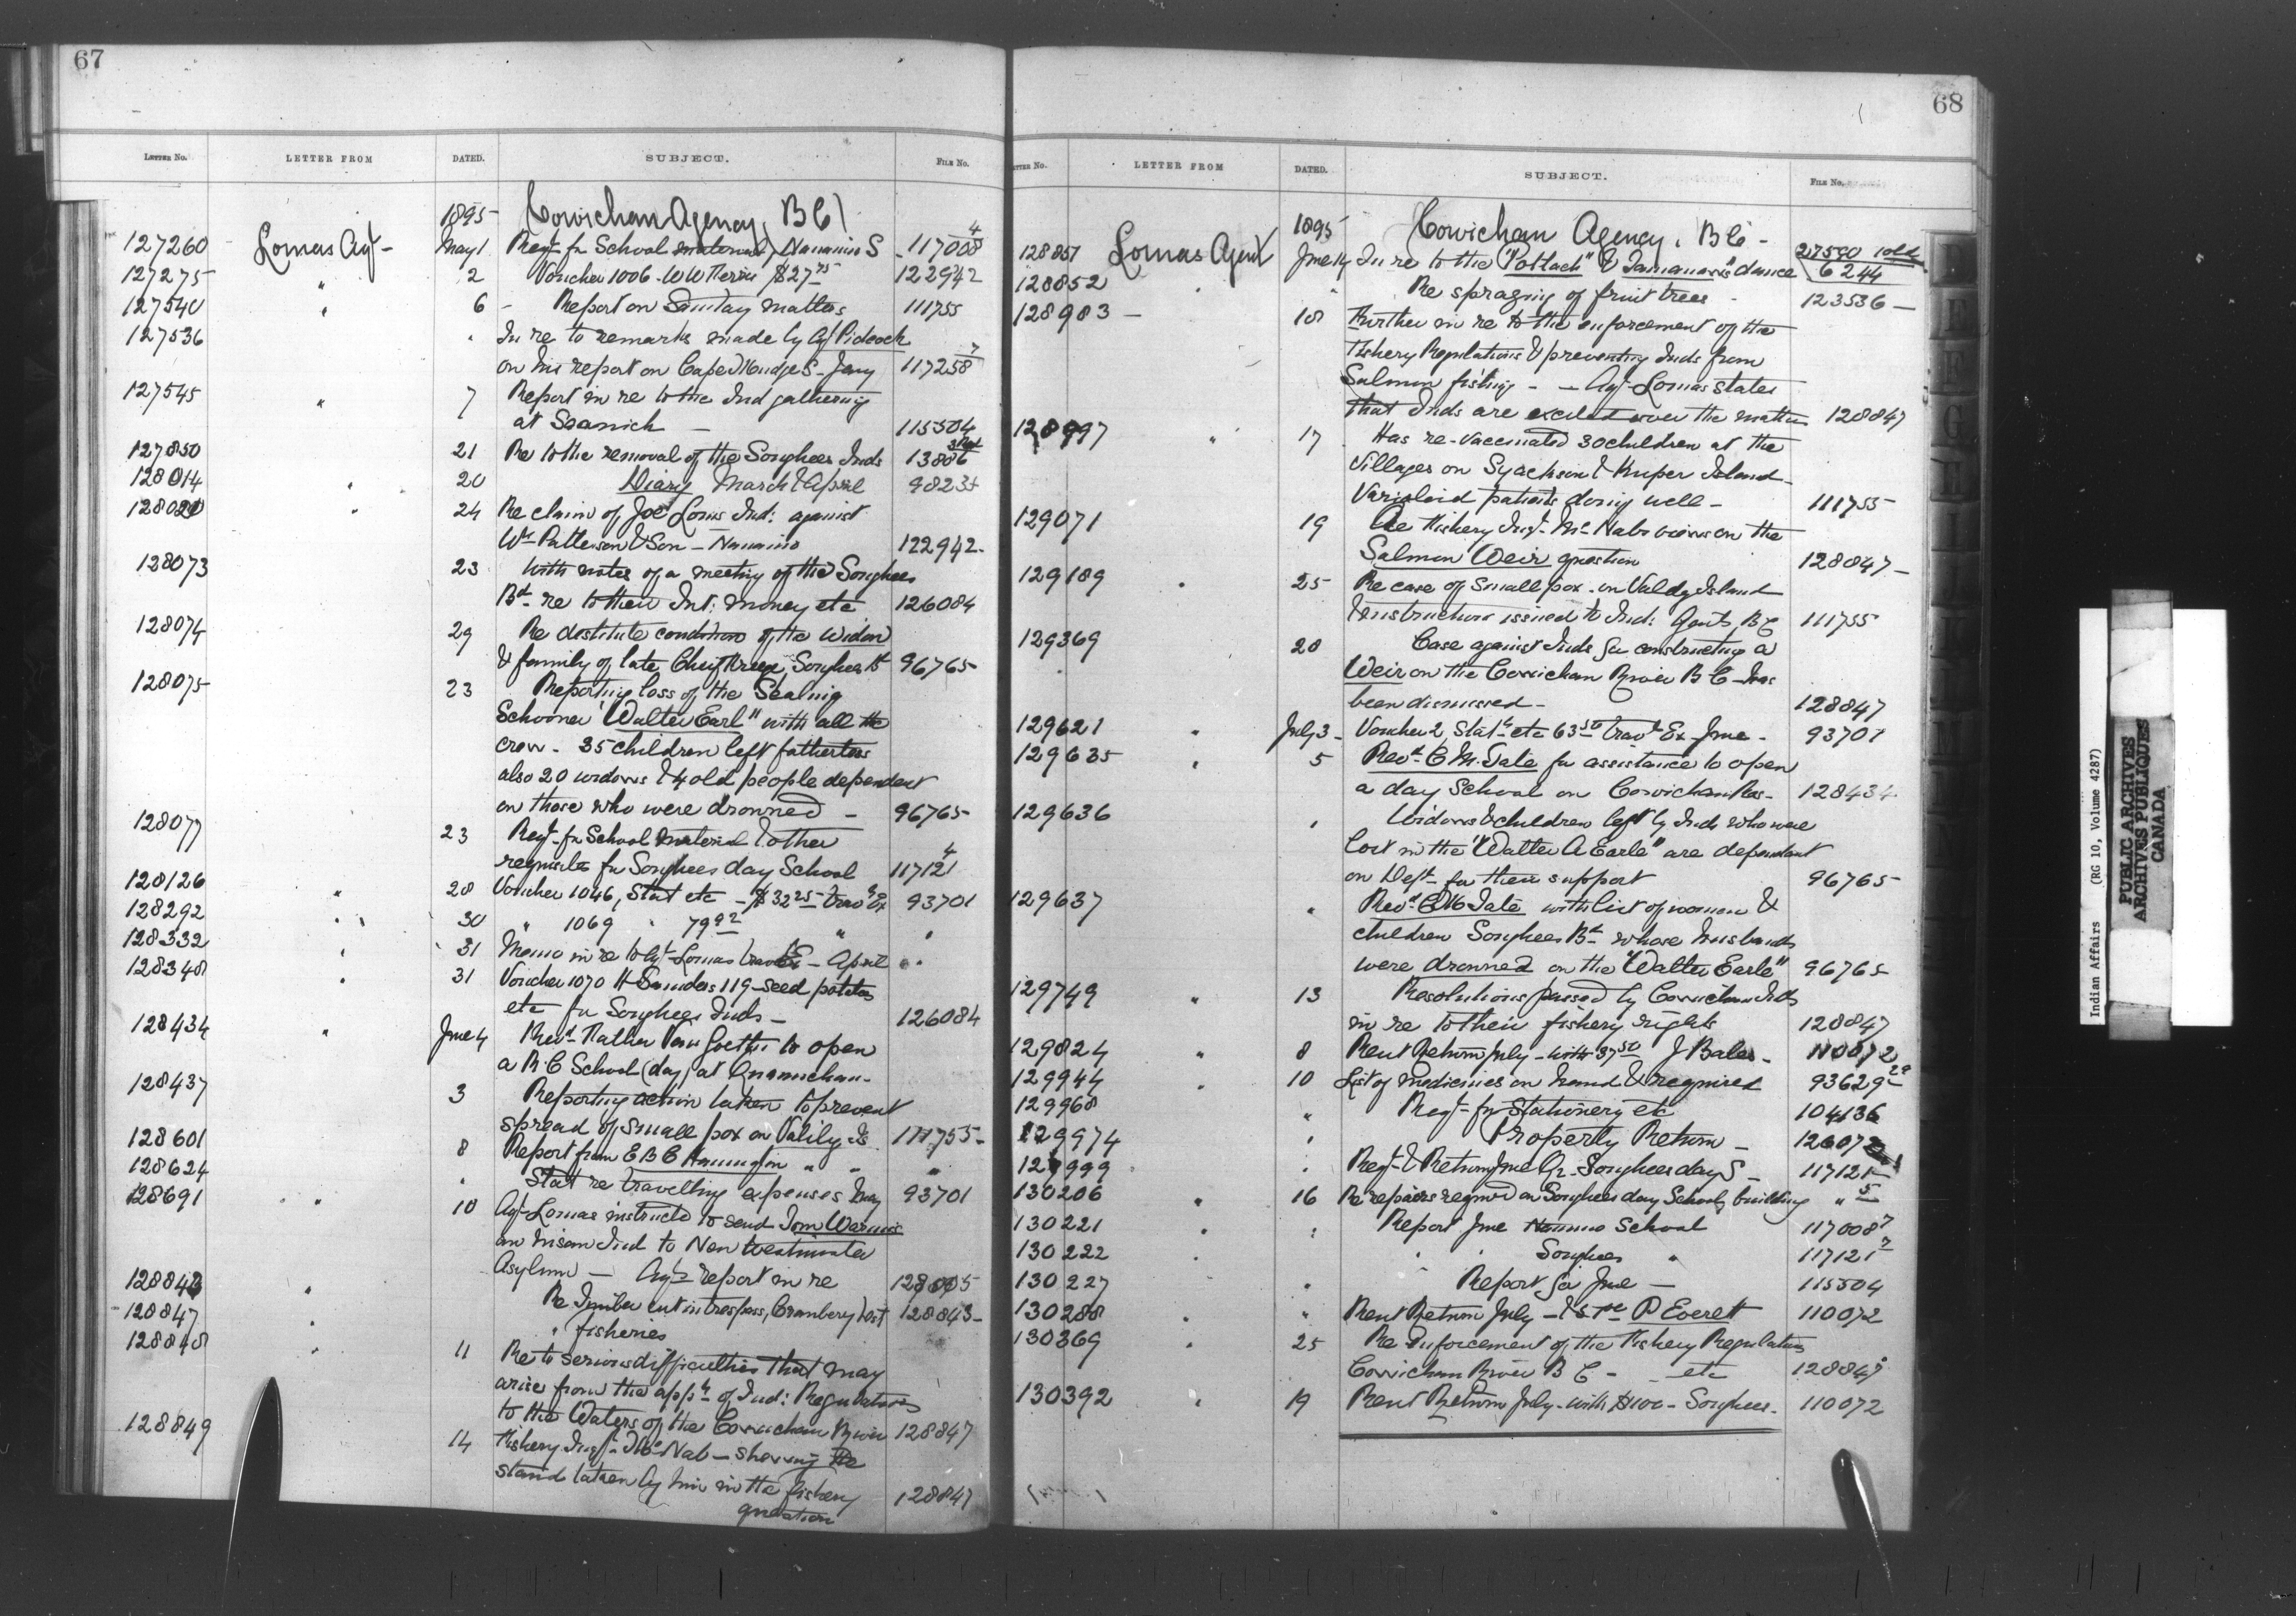 67
Letter No. LETTER FROM DATED. SUBJECT. File No.
1895 Cowichan Agency, B C
127260 Lomas Agt May 1 Reqt. for School material Nanaimo S 117008 4
127275 " 2 Voucher 1006 - W W $27 122942
127540 " 6 Report on Sanitary matters 111755
127536 " In re to remarks made by Agt Pidcock
on his report on Cape Mudge S - Jany 117258 7
127545 " 7 Report in re to the Ind gathering
at Saanich - 115504
127850 21 Re to the removal of the Songhees Inds 13886
128014 " 20 Diary March & April 98234
128020 " 24 Re claim of Joe Louis Ind: against
Wm Patterson & Son - Nanaimo 122942
128073 23 With notes of a meeting of the Songhees
Bd. re to their Int: money etc 126084
128074 29 Re destitute condition of the widow
& family of late Chief Songhees Bd 96765
128075 23 Reporting loss of the Sealing
Schooner "Walter Earl" with all the
crew - 35 children left fatherless
also 20 widows & 4 old people dependent
on those who were drowned - 96765
128077 23 Reqt. for School material & other
requisite for Songhees day School 117121 4
128126 " 28 Voucher 1046, Stat etc - $32 25 Trav Ex 93701
128292 " 30 " 1069 " 79 92 " "
128332 " 31 Memo in re to Agt Lomas trav Ex - April "
128348 " 31 Voucher 1070 H Saunders 119 - seed potatoes
etc for Songhees Inds - 126084
128434 " June 4 Revd. Father Van to open
a R C School (day) at Quamichan -
128437 3 Reporting action taken to prevent
spread of Small pox on Is 111755
128601 8 Report from E B C Hannington " " "
128624 " Stat re travelling expenses May 93701
128691 " 10 Agt Lomas instructed to send Tom
an Insane Ind to New Westminster
Asylum - Agts report in re 128005
128843 " Re Timber cut in trespass, Cranberry Dist 128843
128847 " " fisheries
128848 " 11 Re to serious difficulties that may
arise from the appn of Ind: Regulations
to the Waters of the Cowichan River 128847
128849 14 Fishery Inspt. McNab - shewing the
stand taken by him in the fishery
question 128847
68
Letter No. LETTER FROM DATED. SUBJECT. File No.
1895 Cowichan Agency, B C -
128851 Lomas Agent June 14 In re to the "Potlach" & Tamanawas dance 27590 1 old
6244
128852 " " Re spraying of fruit trees - 123536
128983 - 18 Further in re to the enforcement of the
Fishery Regulations & preventing Inds from
Salmon fishing - Agt Lomas states
that Inds are excited over the matter 128847
128997 " 17 Has re-vaccinated 30 children at the
Villages on Syackson & Kuper Island
Varioloid patients doing well - 111755
129071 19 Re Fishery Inspt. McNabs views on the
Salmon Weir question 128847
129189 " 25 Re case of Small pox on Valdez Island
& instructions issued to Ind: Agents, B C 111755
129369 28 Case against Inds for constructing a
Weir on the Cowichan River B C - has
been dismissed - 128847
129621 " July 3 Voucher 2 Staty etc 63 50 Travg Ex June - 93701
129635 " 5 Revd. C M Tate for assistance to open
a day School on Cowichan Res - 128434
129636 " Widows & children left by Inds who were
lost in the "Walter A Earle" are dependant
on Dept for their support 96765
129637 " Revd. C M Tate with list of women &
children Songhees Bd. whose husbands
were drowned on the "Walter Earle" 96765
129749 " 13 Resolutions passed by Cowichan Inds
in re to their fishery rights 128847
129824 " 8 Rent Return July - with 37 50 J Bales - 110072
129944 " 10 List of medicines on hand & required 93629 29
129968 " Reqt. for Stationery etc 104136
129974 " Property Return - 126072
129999 " Reqt. & Return June Qr - Songhees day S 117121
130206 " 16 Re repairs required on Songhees day School building " 5
130221 " " Report June Nanaimo School 117008 7
130222 " " Songhees " 117121 7
130227 " Report for June - 115504
130288 " Rent Return July - P Everett 110072
130369 " 25 Re Enforcement of the Fishery Regulations
Cowichan River B C - etc 128847
130392 " 19 Rent Return July - with $100 - Songhees - 110072
Indian Affairs (RG 10, Volume 4287)
PUBLIC ARCHIVES
ARCHIVES PUBLIQUES
CANADA